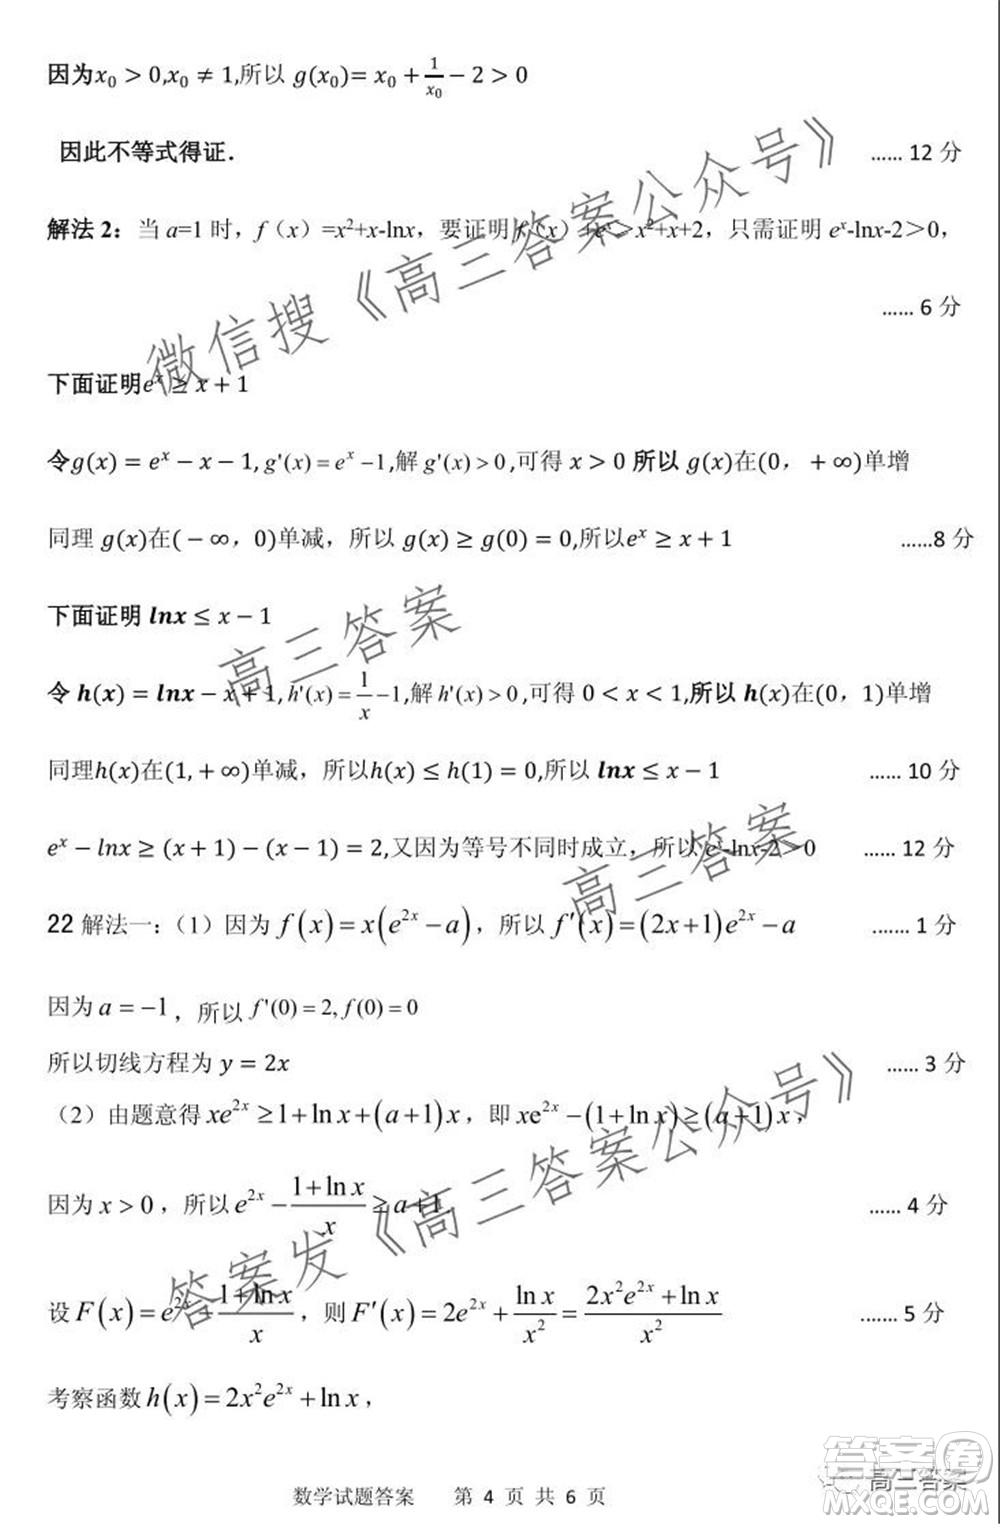 因为x₀ > 0,x₀ ≠ 1,所以 g(x₀)= x₀ + 1/x₀ − 2 > 0
因此不等式得证. …… 12 分
解法 2：当 a=1 时，f（x）=x²+x-lnx，要证明 f（x）+eˣ＞x²+x+2，只需证明 eˣ-lnx-2＞0，
…… 6 分
下面证明eˣ ≥ x + 1
令g(x) = eˣ − x − 1, g'(x) = eˣ −1,解 g'(x) > 0 ,可得 x > 0 所以 g(x)在(0，+∞)单增
同理 g(x)在(−∞，0)单减，所以 g(x) ≥ g(0) = 0,所以eˣ ≥ x + 1 ……8 分
下面证明 lnx ≤ x − 1
令 h(x) = lnx − x + 1, h'(x) = 1/x −1,解 h'(x) > 0 ,可得 0 < x < 1,所以 h(x)在(0，1)单增
同理h(x)在(1,+∞)单减，所以h(x) ≤ h(1) = 0,所以 lnx ≤ x − 1 …… 10 分
eˣ − lnx ≥ (x + 1) − (x − 1) = 2,又因为等号不同时成立，所以 eˣ-lnx-2＞0 …… 12 分
22 解法一：（1）因为 f(x) = x(e²ˣ − a)，所以 f′(x) = (2x+1)e²ˣ − a ……. 1 分
因为 a = −1，所以 f'(0) = 2, f(0) = 0
所以切线方程为 y = 2x …… 3 分
（2）由题意得 xe²ˣ ≥ 1+ln x+(a+1)x，即 xe²ˣ −(1+ln x) ≥ (a+1)x，
因为 x > 0，所以 e²ˣ − (1+ln x)/x ≥ a+1. …… 4 分
设 F(x) = e²ˣ − (1+ln x)/x，则 F′(x) = 2e²ˣ + ln x/x² = (2x²e²ˣ + ln x)/x² ……. 5 分
考察函数 h(x) = 2x²e²ˣ + ln x，
数学试题答案 第 4 页 共 6 页
微信搜《高三答案公众号》
高三答案
高三答案
答案发《高三答案公众号》
高三答案
答案卷
MXQE.COM